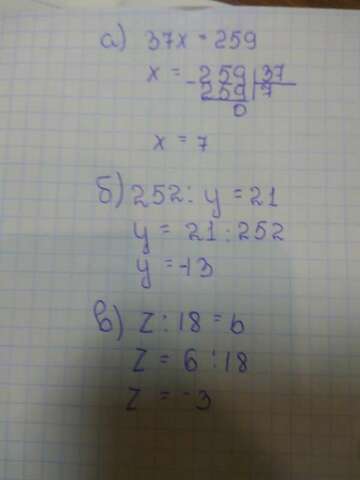 а) 37x = 259
x = 259 | 37
- 259 | 7
0
x = 7
б) 252 : y = 21
y = 21 : 252
y = -13
в) z : 18 = 6
z = 6 : 18
z = -3